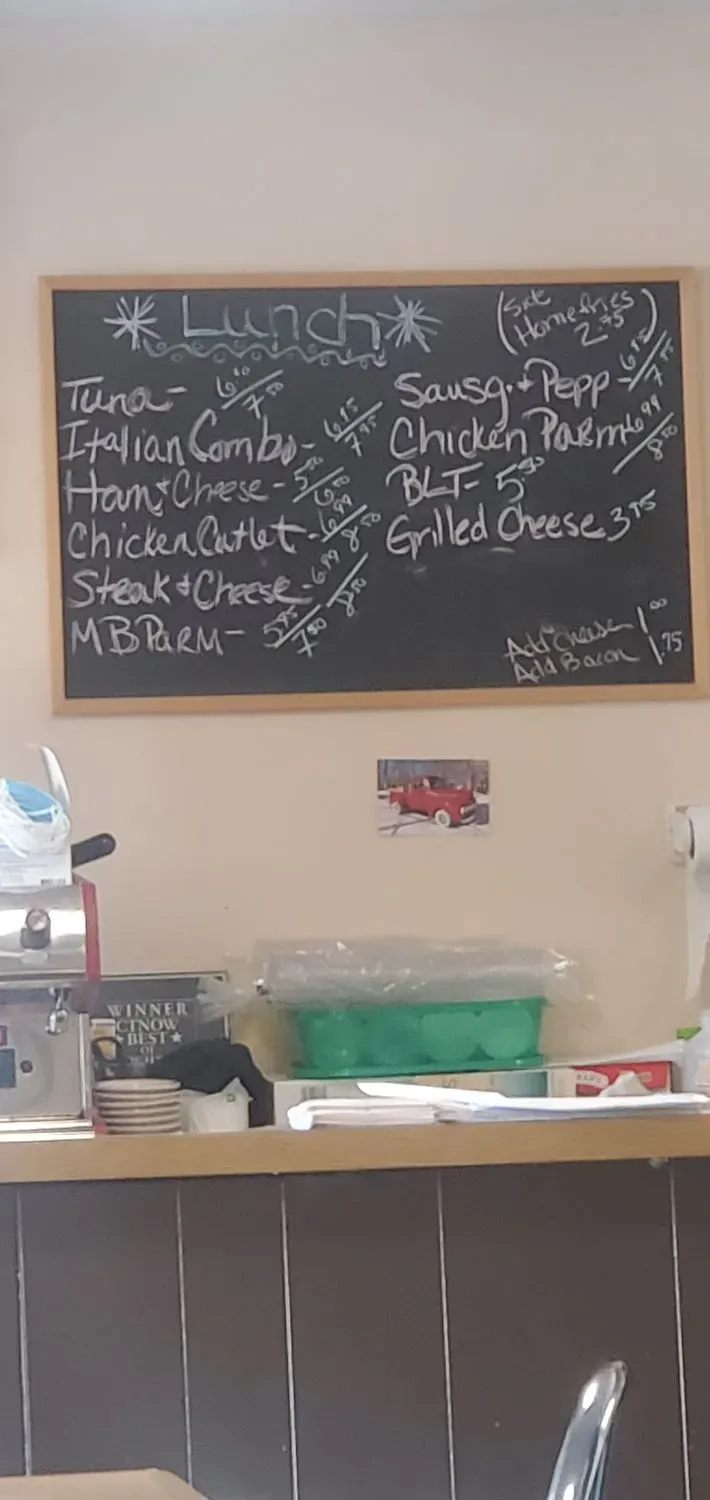 Lunch
(Side
Homefries
2.75)
Tuna - /7.50
Italian Combo - 6.95/7.95
Ham + Cheese - 5.50/6.00
Chicken Cutlet - 6.99/8.50
Steak + Cheese - 6.99/8.50
MB Parm - 5.95/7.50
Sausg. + Pepp - 6.95/7.95
Chicken Parm 6.99/8.50
BLT - 5.50
Grilled Cheese 3.75
Add Cheese 1.00
Add Bacon 1.75
WINNER
CTNOW
BEST
OF